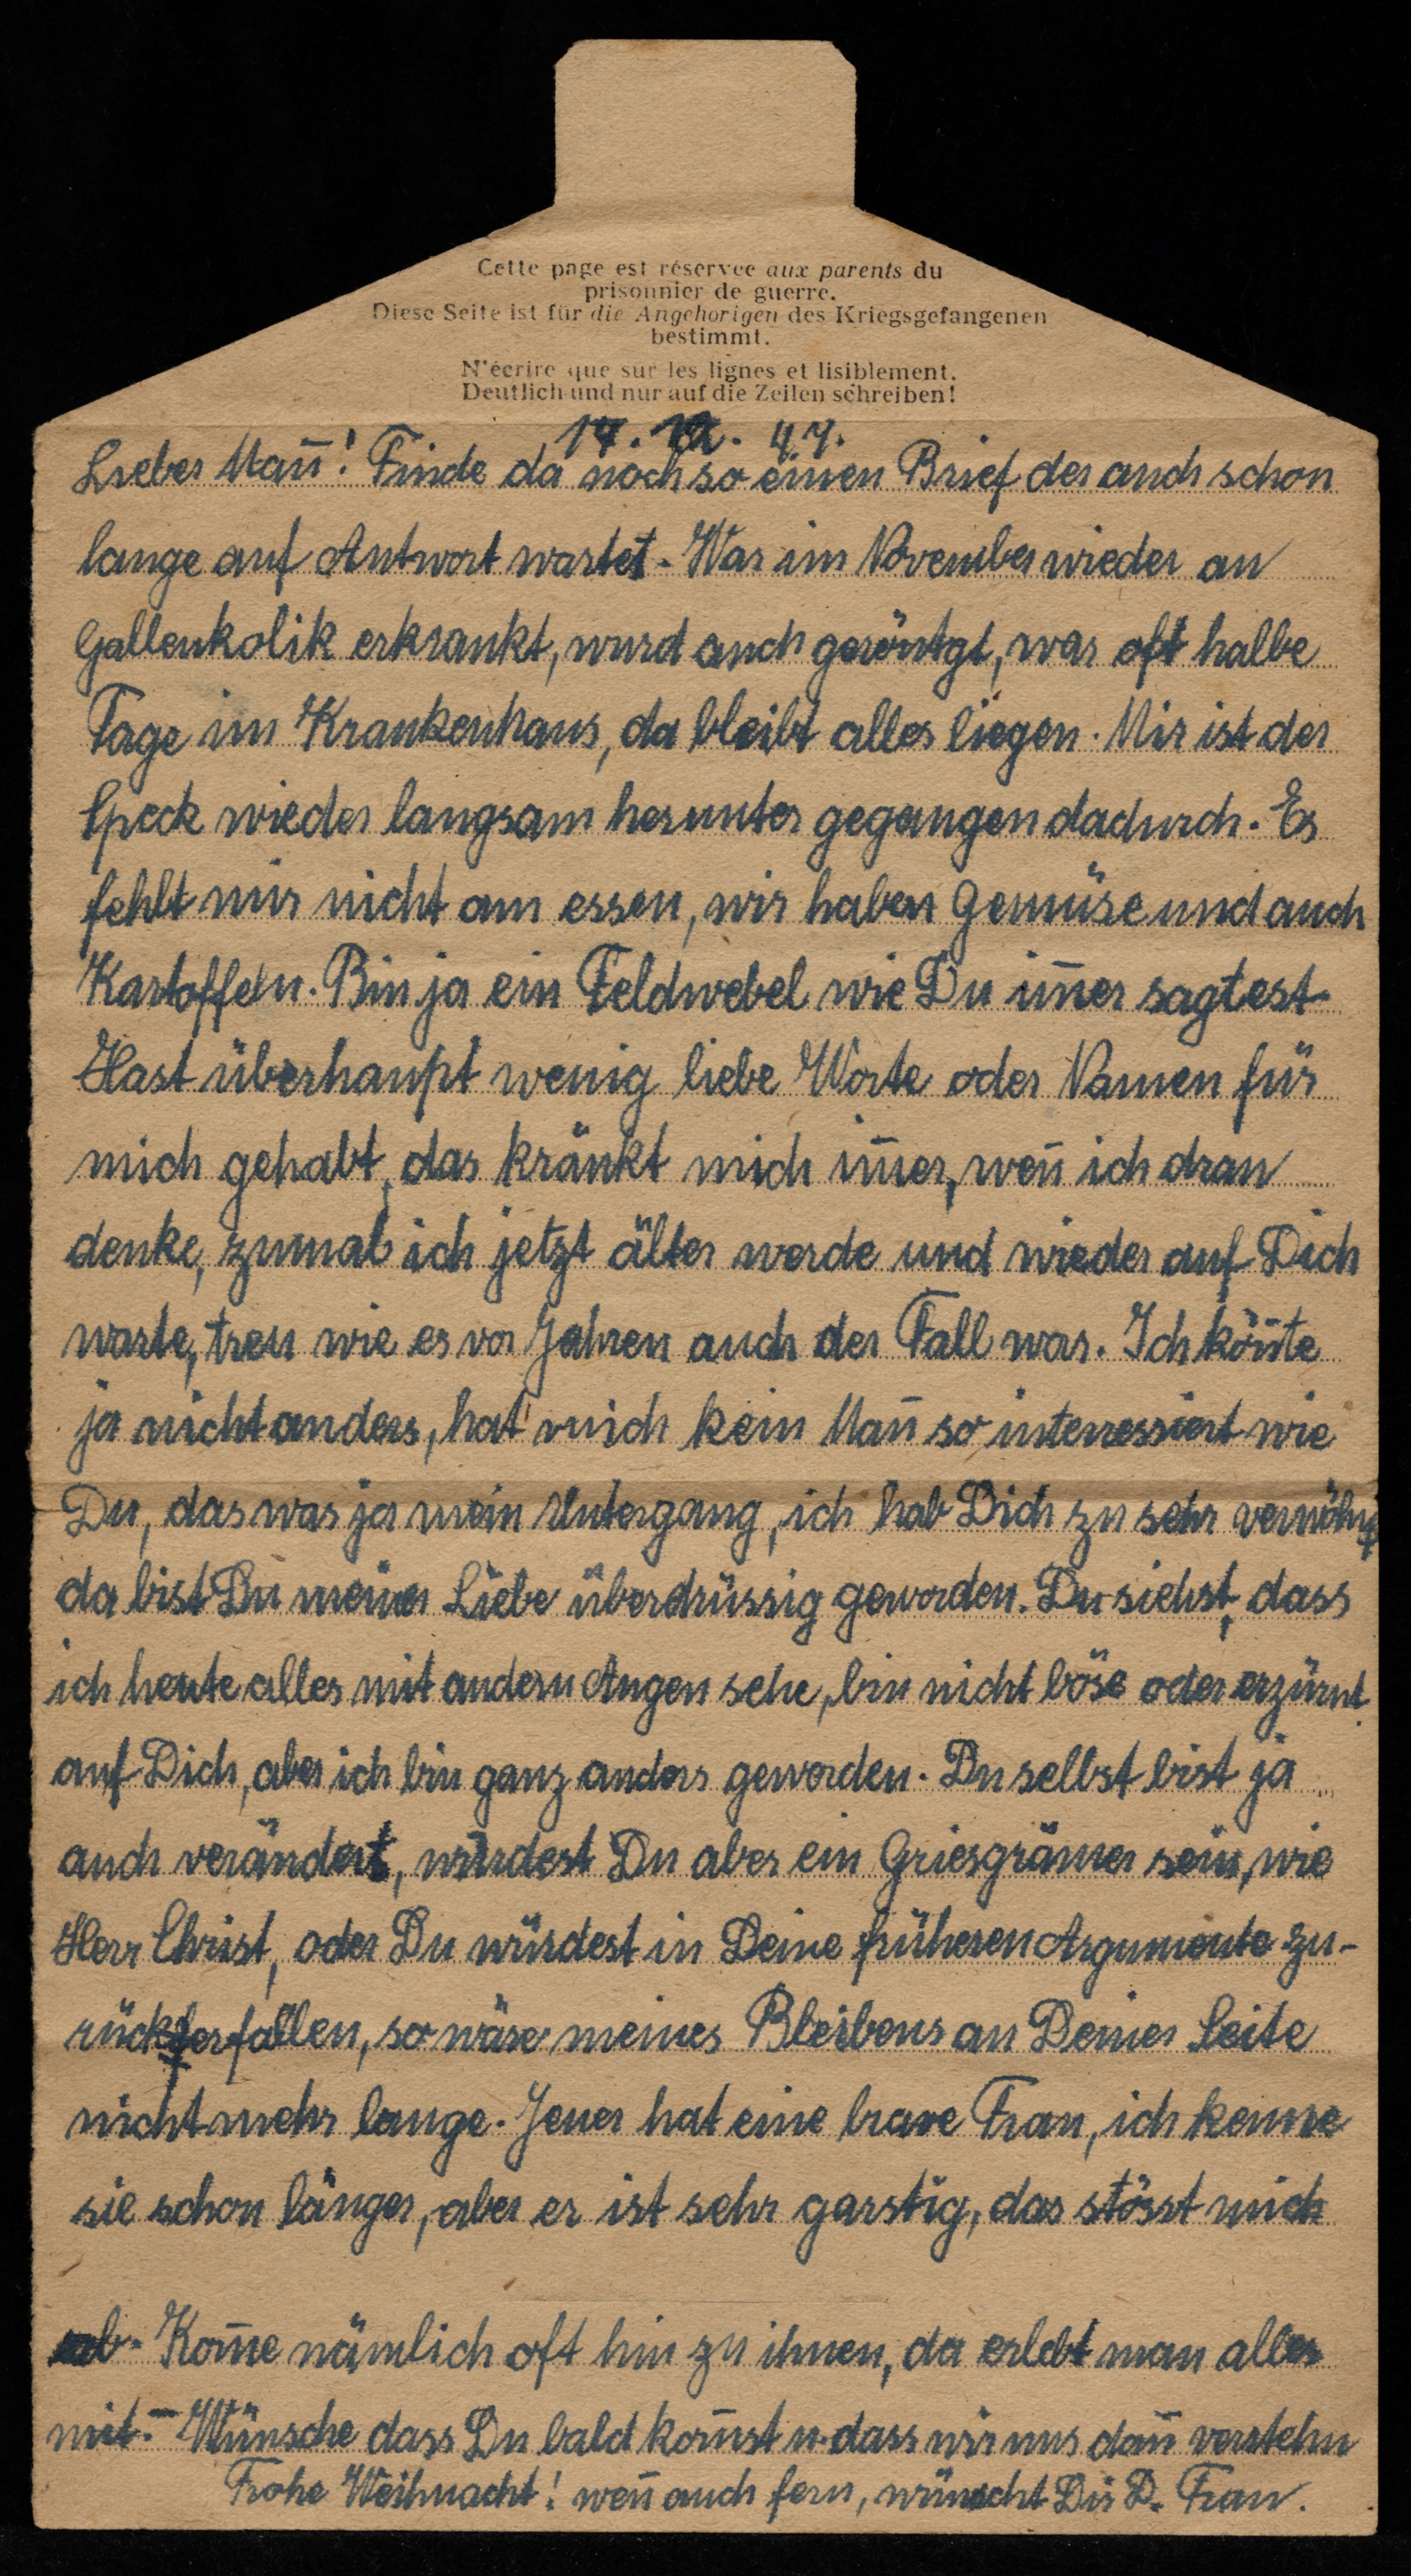 Cette page est réservée aux parents du
prisonnier de guerre.
Diese Seite ist für die Angehörigen des Kriegsgefangenen
bestimmt.
N'écrire que sur les lignes et lisiblement.
Deutlich und nur auf die Zeilen schreiben!
14. 12. 47.
Lieber Mañ! Finde da noch so einen Brief der auch schon
lange auf Antwort wartet. War im November wieder an
Gallenkolik erkrankt, wurd auch geröntgt, war oft halbe
Tage im Krankenhaus, da bleibt alles liegen. Mir ist der
Speck wieder langsam herunter gegangen dadurch. Es
fehlt mir nicht am essen, wir haben Gemüse und auch
Kartoffeln. Bin ja ein Feldwebel wie Du im̄er sagtest.
Hast überhaupt wenig liebe Worte oder Namen für
mich gehabt, das kränkt mich im̄er, weñ ich dran
denke, zumal ich jetzt älter werde und wieder auf Dich
warte, treu wie es vor Jahren auch der Fall war. Ich köñte
ja nicht anders, hat mich kein Mañ so interressiert wie
Du, das war ja mein Untergang, ich hab Dich zu sehr verwöhnt
da bist Du meiner Liebe überdrüssig geworden. Du siehst, dass
ich heute alles mit andern Augen sehe, bin nicht böse oder erzürnt
auf Dich, aber ich bin ganz anders geworden. Du selbst bist ja
auch verändert, würdest Du aber ein Griesgrämer sein, wie
Herr Christ, oder Du würdest in Deine früheren Argumente zu-
rückverfallen, so wäre meines Bleibens an Deiner Seite
nicht mehr lange. Jener hat eine brave Frau, ich kenne
sie schon länger, aber er ist sehr garstig, das stösst mich
ab. Kom̄e nämlich oft hin zu ihnen, da erlebt man alles
mit. – Wünsche dass Du bald kom̄st u. dass wir uns dañ verstehn
Frohe Weihnacht! weñ auch fern, wünscht Dir D. Frau.